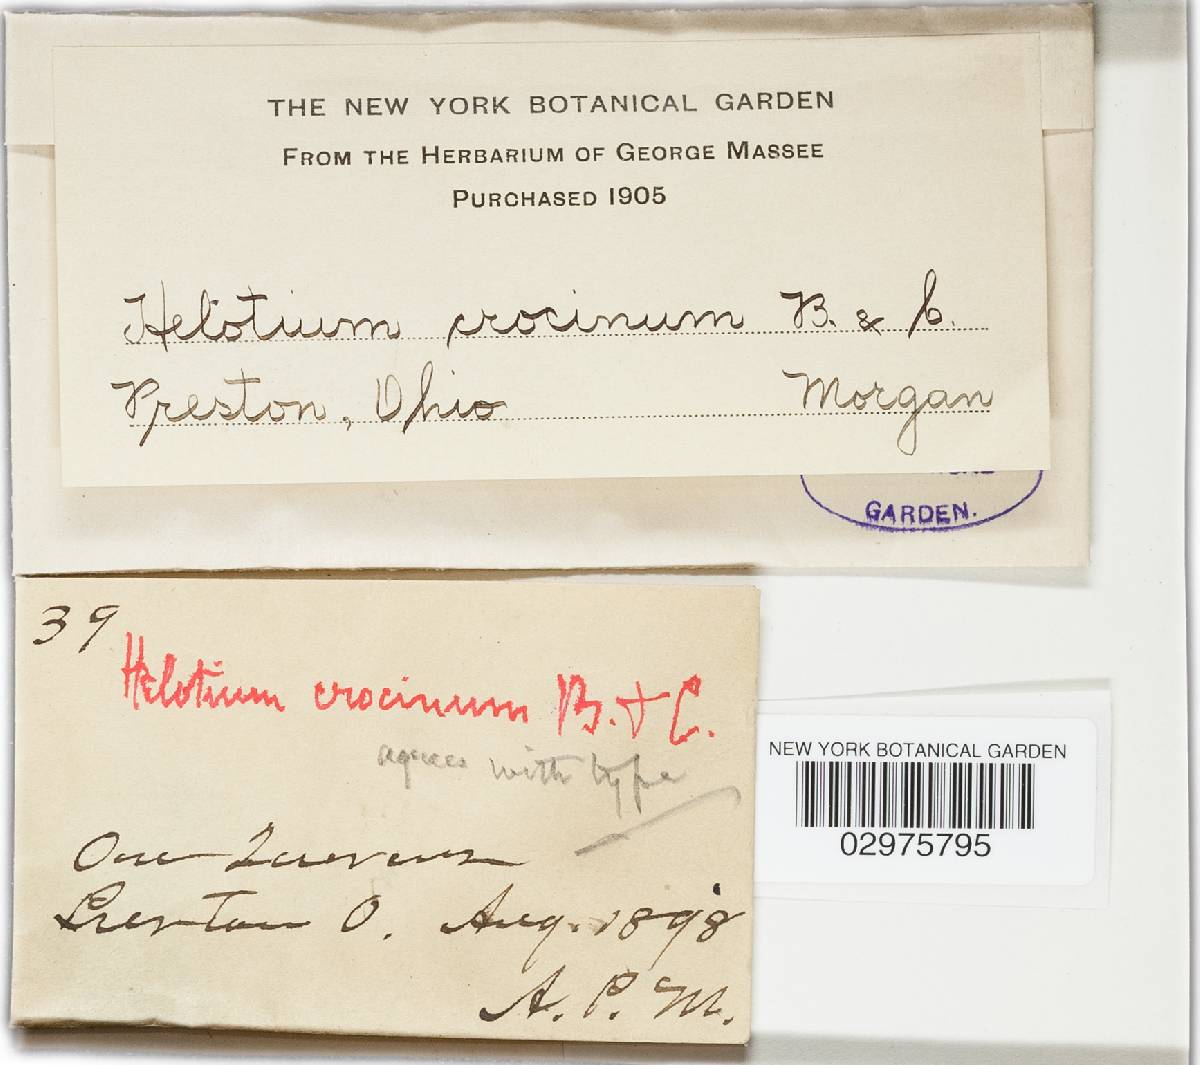 THE NEW YORK BOTANICAL GARDEN
FROM THE HERBARIUM OF GEORGE MASSEE
PURCHASED 1905
Helotium crocinum B. & C.
Preston, Ohio Morgan
GARDEN.
39
Helotium crocinum B. & C.
agrees with type
On Quercus
Preston O. Aug. 1898
A. P. M.
NEW YORK BOTANICAL GARDEN
02975795